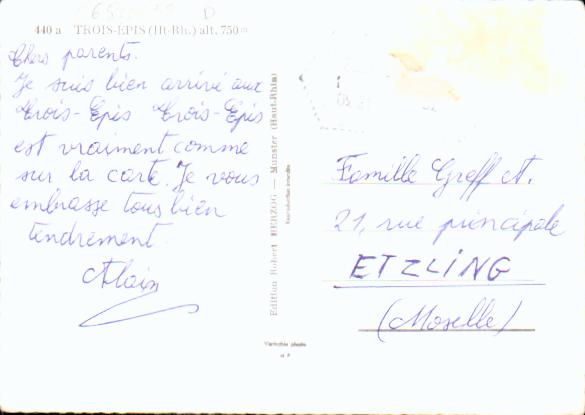 440 a TROIS-EPIS (Ht-Rh.) alt. 750 m
Chers parents.
Je suis bien arrivé aux
Trois-Epis Trois-Epis
est vraiment comme
sur la carte. Je vous
embrasse tous bien
tendrement.
Alain
Edition Robert HERZOG — Munster (Haut-Rhin)
Reproduction interdite
Véritable photo
Famille Greff A.
21, rue principale
ETZLING
(Moselle)